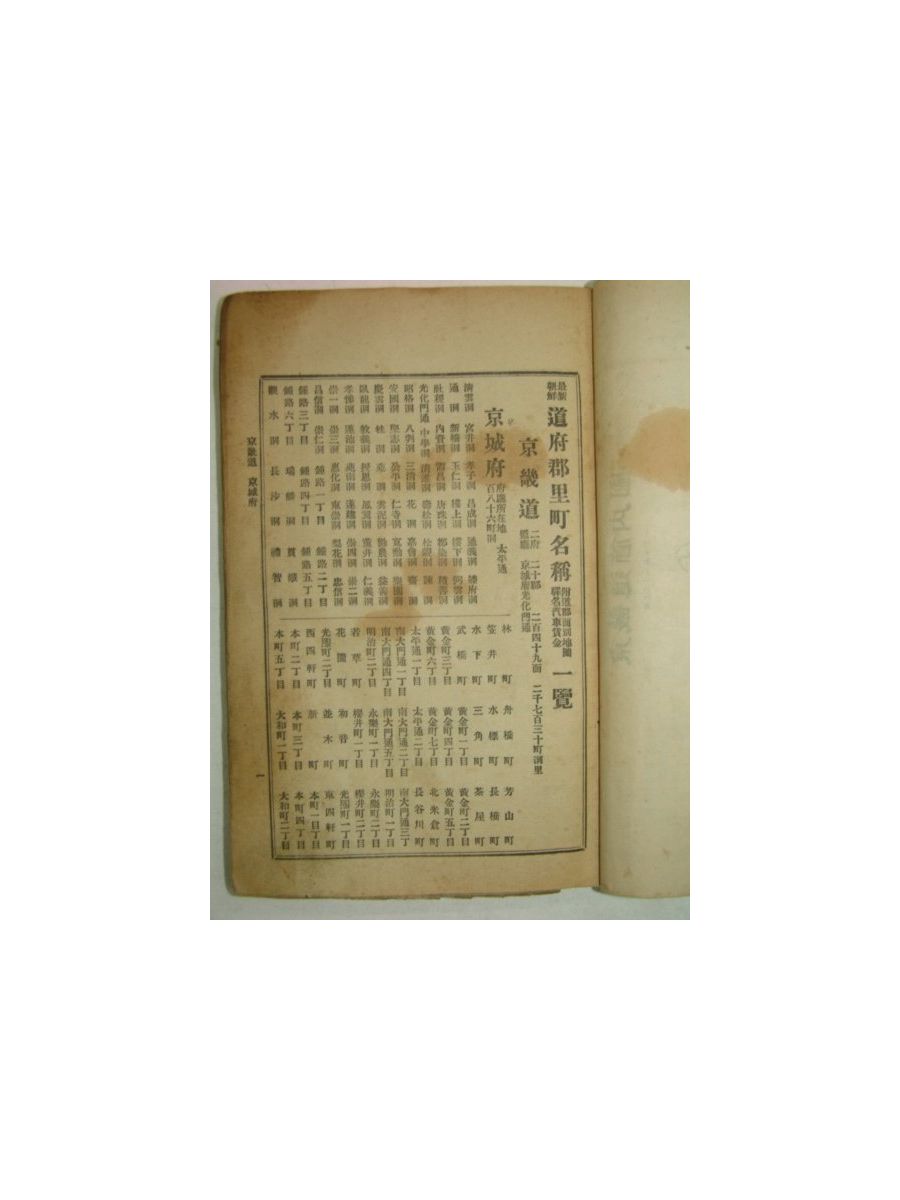 最新朝鮮 道府郡里町名稱 附道郡面別地圖驛名汽車賃金 一覽
京畿道 二府 二十郡 二百四十九面 二千七百三十町洞里
道廳 京城府光化門通
京城府 府廳所在地 太平通
百八十六町洞
林町 舟橋町 芳山町
笠井町 水標町 長橋町
水下町 三角町 茶屋町
武橋町 黃金町一丁目 黃金町二丁目
黃金町三丁目 黃金町四丁目 黃金町五丁目
黃金町六丁目 黃金町七丁目 北米倉町
太平通一丁目 太平通二丁目 長谷川町
南大門通一丁目 南大門通二丁目 南大門通三丁
南大門通四丁目 南大門通五丁目 明治町一丁目
明治町二丁目 永樂町一丁目 永樂町二丁目
若草町 櫻井町一丁目 櫻井町二丁目
花園町 初音町 光熙町一丁目
光熙町二丁目 並木町 東四軒町
西四軒町 新町 本町一丁目
本町二丁目 本町三丁目 本町四丁目
本町五丁目 大和町一丁目 大和町二丁目
淸雲洞 宮井洞 孝子洞 昌成洞 通義洞
通洞 新橋洞 玉仁洞 樓上洞 樓下洞
社稷洞 內資洞 唐珠洞 都染洞 積善洞
光化門通 中學洞 淸進洞 壽松洞 松峴洞 諫洞
昭格洞 八判洞 三淸洞 花洞 嘉會洞 齋洞
安國洞 堅志洞 公平洞 仁寺洞 寬勳洞 樂園洞
慶雲洞 桂洞 苑洞 雲泥洞 勸農洞 益善洞
臥龍洞 敦義洞 授恩洞 鳳翼洞 薰井洞 仁義洞
孝悌洞 蓮池洞 蓮建洞 崇四洞 崇二洞
崇一洞 崇三洞 惠化洞 東崇洞 梨花洞 忠信洞
昌信洞 崇仁洞 鍾路一丁目 鍾路二丁目
鍾路三丁目 鍾路四丁目 鍾路五丁目
鍾路六丁目 瑞麟洞 貫鐵洞
觀水洞 長沙洞 禮智洞
京畿道 京城府
一